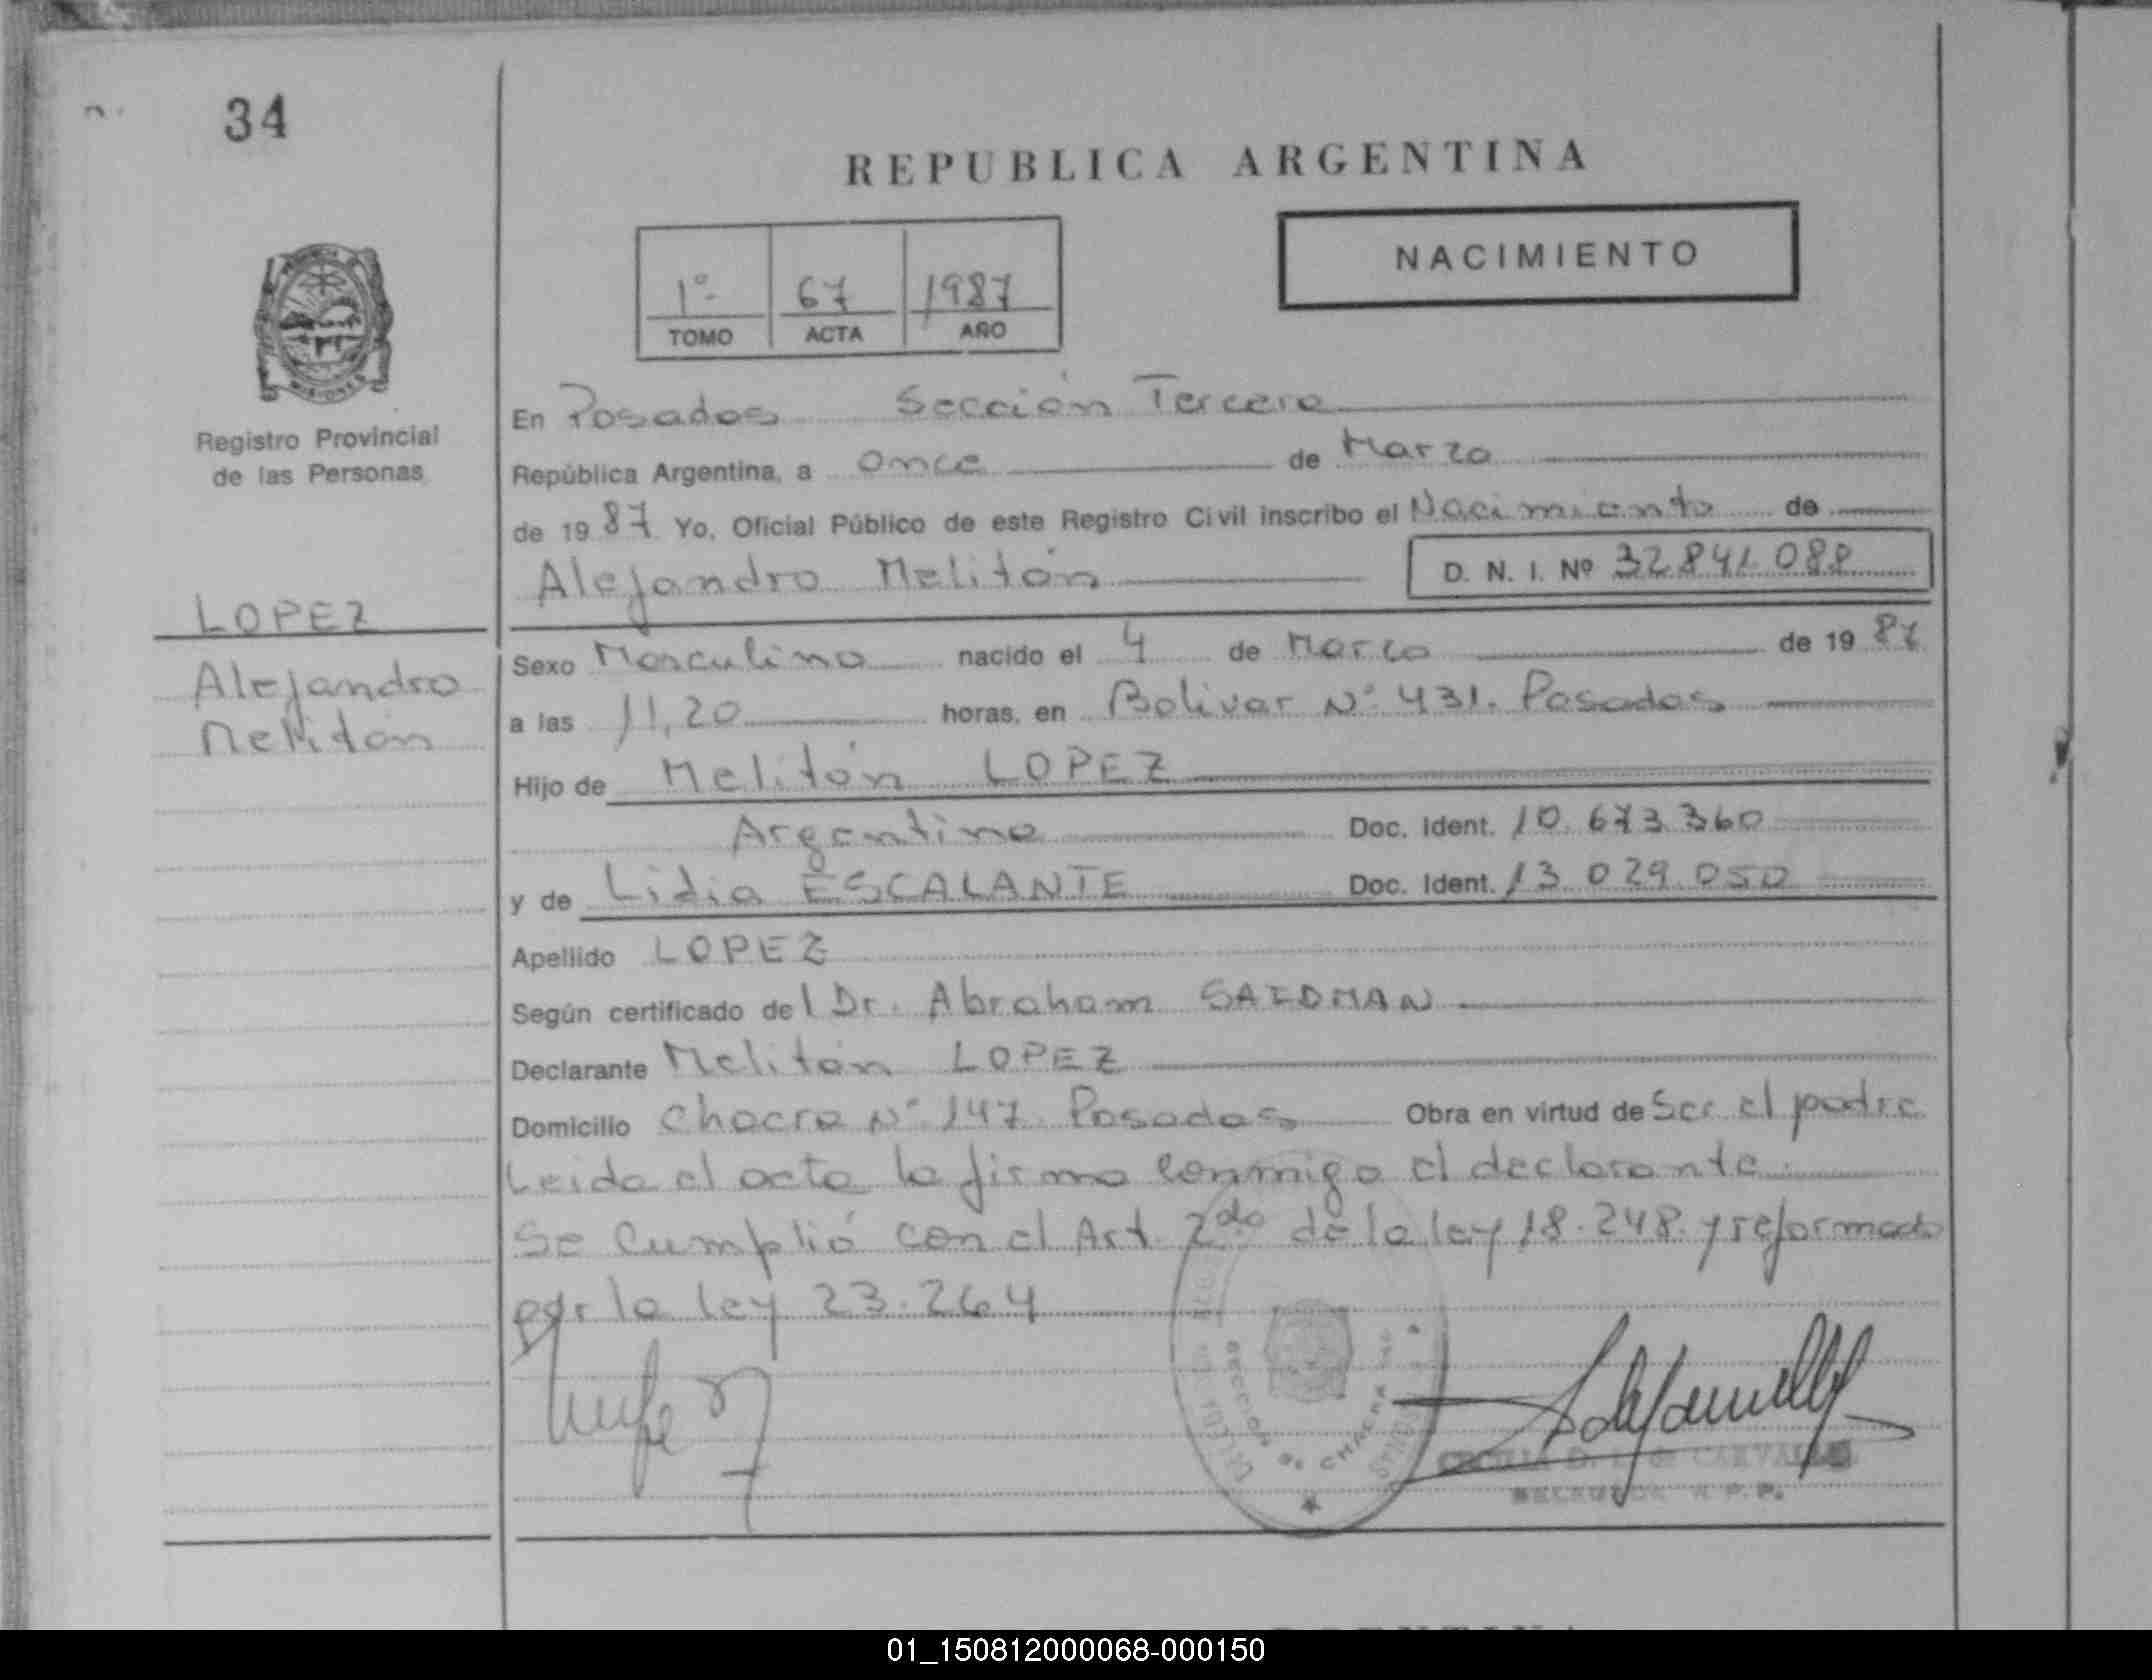 34
REPUBLICA ARGENTINA
NACIMIENTO
1º 67 1987
TOMO ACTA AÑO
MISIONES
Registro Provincial
de las Personas
LOPEZ
Alejandro
Melitón
En Posadas Sección Tercera
República Argentina, a once de Marzo
de 1987 Yo, Oficial Público de este Registro Civil inscribo el Nacimiento de
Alejandro Melitón D. N. I. Nº 32841088
Sexo Masculino nacido el 4 de Marzo de 1987
a las 11,20 horas, en Bolivar Nº 431. Posadas
Hijo de Melitón LOPEZ
Argentino Doc. Ident. 10.673.360
y de Lidia ESCALANTE Doc. Ident. 13.029.050
Apellido LOPEZ
Según certificado del Dr. Abraham SAIDMAN
Declarante Melitón LOPEZ
Domicilio Chacra Nº 147. Posadas Obra en virtud de Ser el padre
Leida el acta la firma conmigo el declarante.
Se Cumplió con el Art. 2do de la ley 18.248. y reformado
por la ley 23.264
SECCION CHACRA
01_150812000068-000150